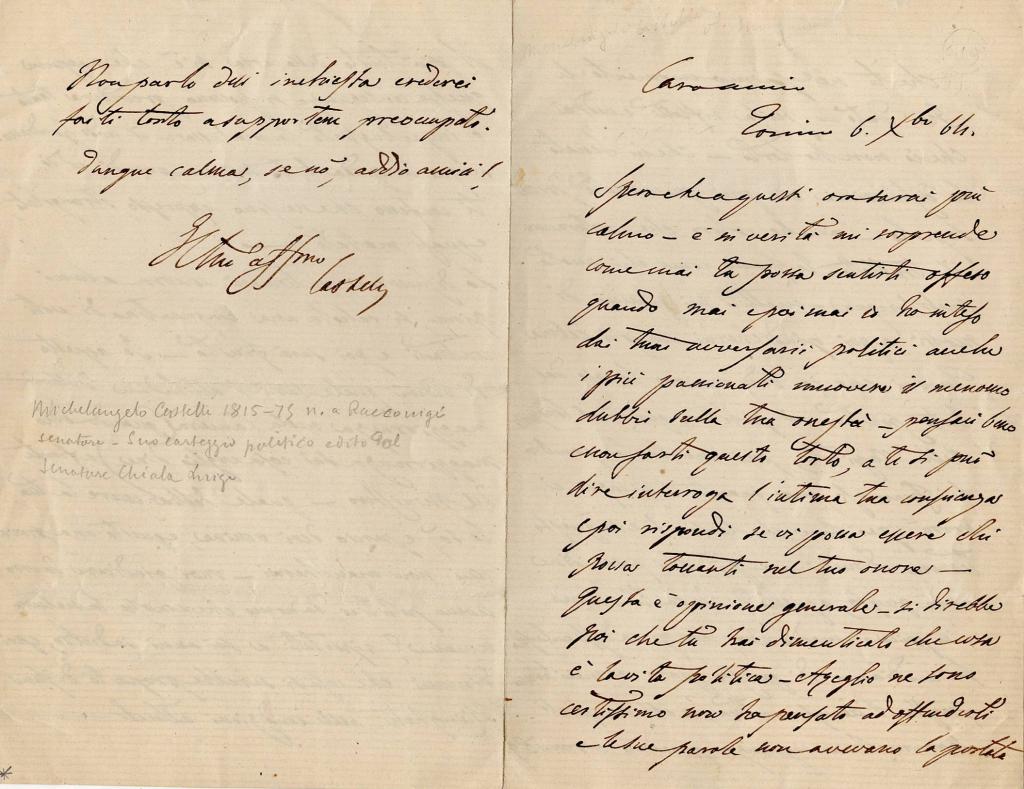 Caro amico
Torino 6. Xbre 64.
Spero che a quest'ora sarai più
calmo – è in verità mi sorprende
come mai tu possa sentirti offeso
quando mai e poi mai io ho inteso
dai tuoi avversarii politici anche
i più passionati muovere il menomo
dubbio sulla tua onestà – pensaci bene
e non farti questo torto, a te si può
dire interroga l'intima tua coscienza
e poi rispondi se vi possa essere chi
possa toccarti nel tuo onore –
Questa è opinione generale – si direbbe
poi che tu hai dimenticato che cosa
è la vita politica – Azeglio ne sono
certissimo non ha pensato ad offenderti
e le sue parole non avevano la portata
Non parlo di inchiesta crederei
farti torto a supporten preoccupato.
Dunque calma, se nò, addio amici!
Il tuo affmo
Castelli
Michelangelo Castelli 1815–75 n. a Racconigi
senatore – Suo carteggio politico edito dal
Senatore Chiala Luigi